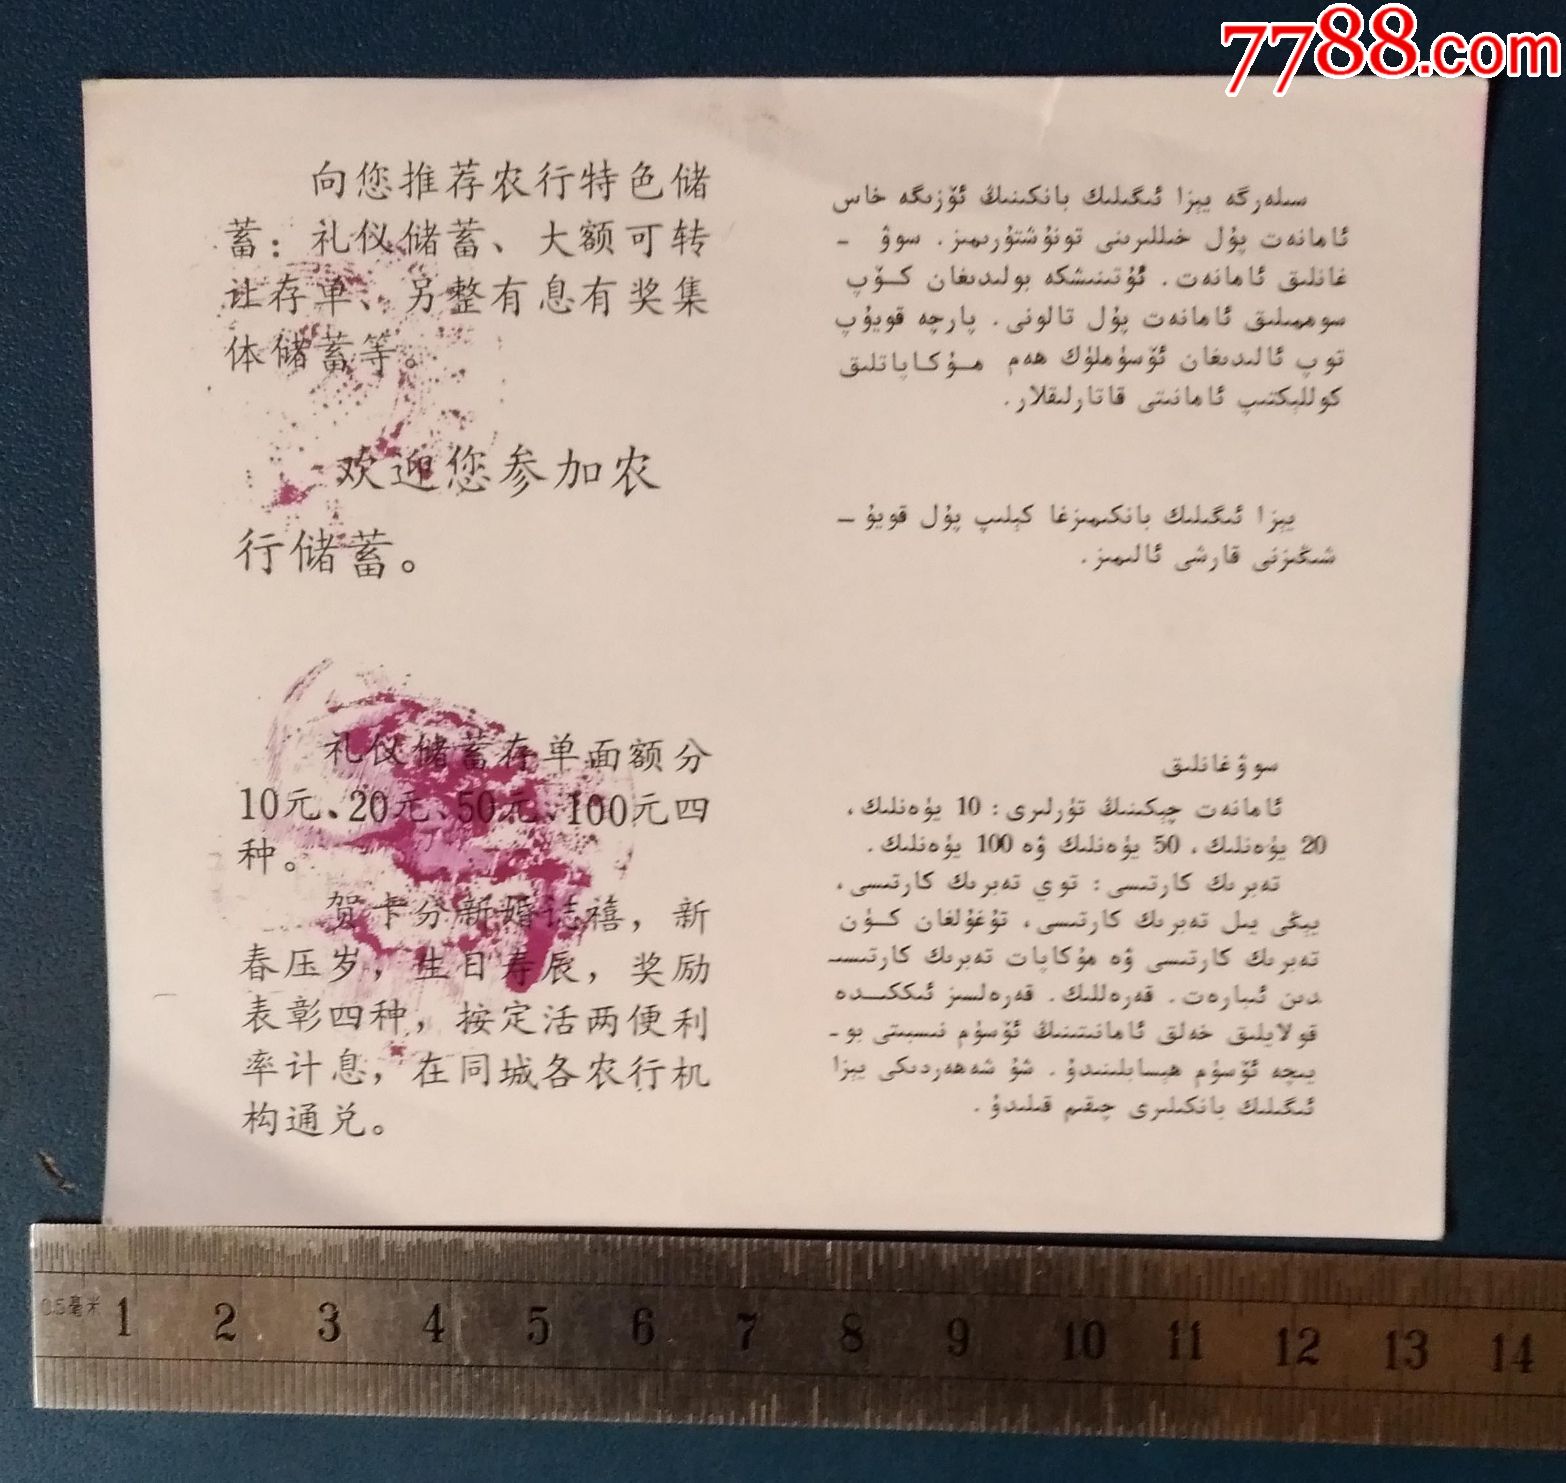 7788.com
向您推荐农行特色储
蓄：礼仪储蓄、大额可转
让存单、另整有息有奖集
体储蓄等。
欢迎您参加农
行储蓄。
礼仪储蓄存单面额分
10元、20元、50元、100元四
种。
贺卡分新婚志禧，新
春压岁，生日寿辰，奖励
表彰四种，按定活两便利
率计息，在同城各农行机
构通兑。
سىلەرگە يېزا ئىگىلىك بانكىنىڭ ئۆزىگە خاس
ئامانەت پۇل خىللىرىنى تونۇشتۇرىمىز. سوۋ -
غانلىق ئامانەت. ئۇتىنىشكە بولىدىغان كۆپ
سوممىلىق ئامانەت پۇل تالونى. پارچە قويۇپ
توپ ئالىدىغان ئۆسۈملۈك ھەم مۇكاپاتلىق
كوللېكتىپ ئامانىتى قاتارلىقلار.
يېزا ئىگىلىك بانكىمىزغا كېلىپ پۇل قويۇ -
شىڭىزنى قارشى ئالىمىز.
سوۋغانلىق
ئامانەت چېكىنىڭ تۈرلىرى: 10 يۈەنلىك،
20 يۈەنلىك، 50 يۈەنلىك ۋە 100 يۈەنلىك.
تەبرىك كارتىسى: توي تەبرىك كارتىسى،
يېڭى يىل تەبرىك كارتىسى، تۇغۇلغان كۈن
تەبرىك كارتىسى ۋە مۇكاپات تەبرىك كارتىسى
دىن ئىبارەت. قەرەللىك. قەرەلسىز ئىككىدە
قولايلىق خەلق ئامانىتىنىڭ ئۆسۈم نىسبىتى بو -
يىچە ئۆسۈم ھېسابلىنىدۇ. شۇ شەھەردىكى يېزا
ئىگىلىك بانكىلىرى چىقىم قىلىدۇ.
0.5毫米
1 2 3 4 5 6 7 8 9 10 11 12 13 14